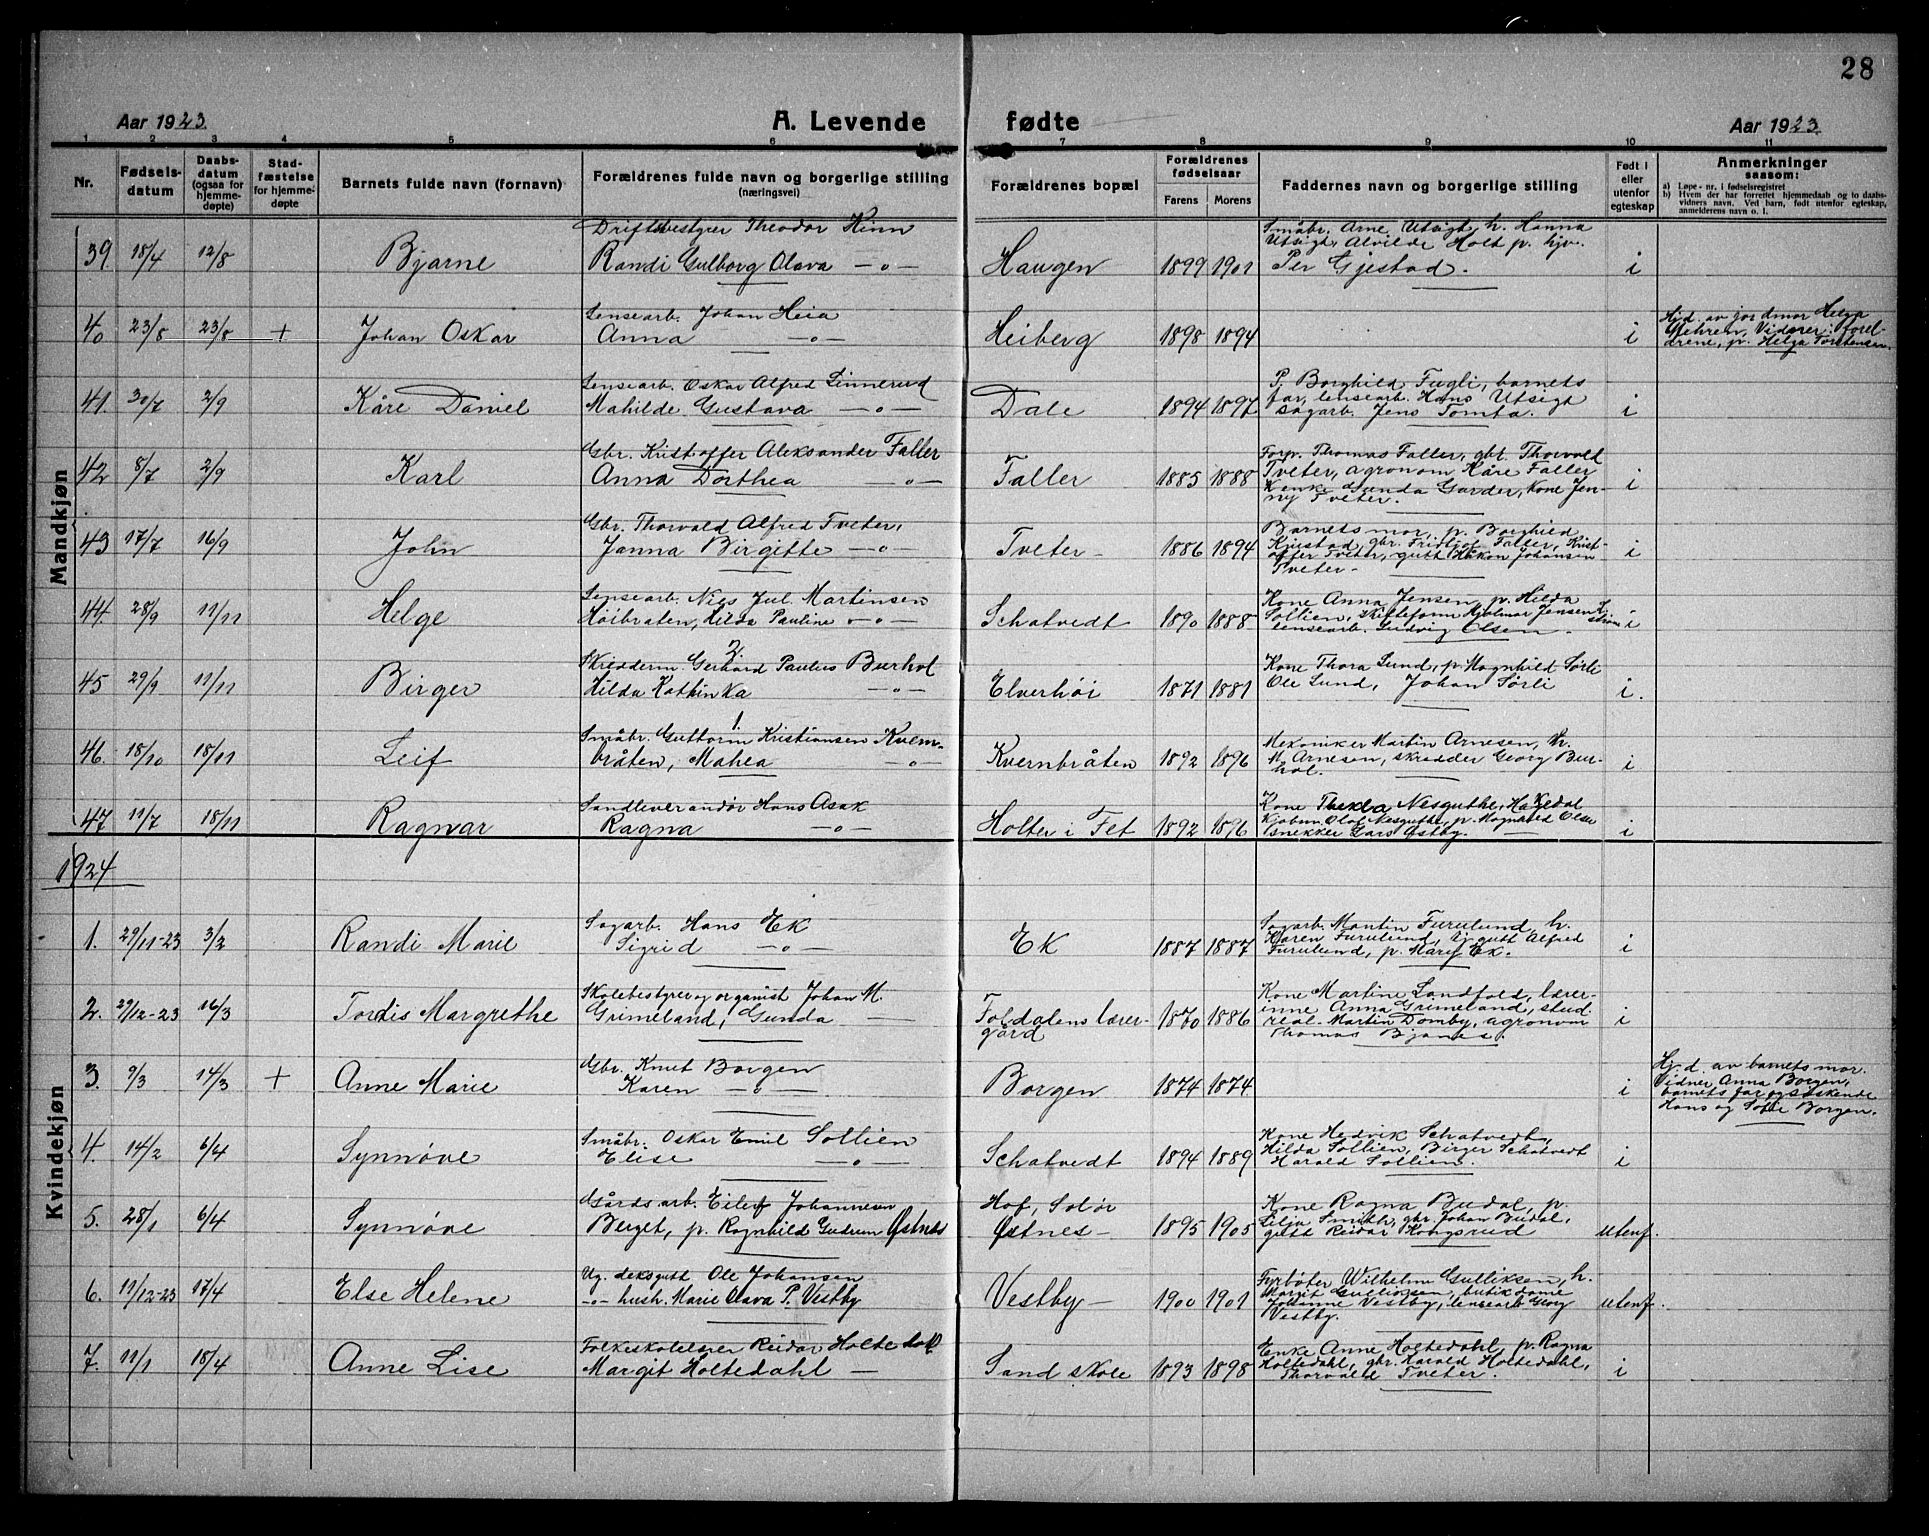 28
Aar 1923. A. Levende fødte Aar 1923
1 2 3 4 5 6 7 8 9 10 11
Nr. Fødselsdatum Daabsdatum (ogsaa for hjemmedøpte) Stadfæstelse for hjemmedøpte Barnets fulde navn (fornavn) Forældrenes fulde navn og borgerlige stilling (næringsvei) Forældrenes bopæl Forældrenes fødselsaar Farens Morens Faddernes navn og borgerlige stilling Født i eller utenfor egteskap Anmerkninger saasom:
a) Løpe-nr. i fødselsregistret
b) Hvem der har forrettet hjemmedaab og to daabsvidners navn. Ved barn, født utenfor egteskap, anmelderens navn o. l.
Mandkjøn
Driftsbestyrer Theodor Kinn Småbr. Arne Utsigt, h. Hanna
39 18/4 12/8 Bjarne Randi Gulborg Olava -"- Haugen 1899 1901 Utsigt, Alvilde Holt p. hjv. i
Per Gjestad.
Lensearb. Johan Heia Hjd. av jordmor Helga
40 23/8 23/8 + Johan Oskar Anna -"- Heiberg 1898 1894 i Gjehren, Vidner: foreldrene, p. Helga Torstensen.
Lensearb. Oskar Alfred Linnerud P. Borghild Fugli, barnets
41. 30/7 2/9 Kåre Daniel Mathilde Gustava -"- Dale 1894 1897 far, lensearb. Hans Utsigt i
sagarb. Jens Tomta.
Gbr. Kristoffer Aleksander Faller Forp. Thomas Faller, gbr. Thorvald
42 8/7 2/9 Karl Anna Dorthea -"- Faller 1885 1888 Tveter, agronom Kåre Faller i
Enke Gunda Garder, Kone Jenny Tveter.
Gbr. Thorvald Alfred Tveter, Barnets mor, p. Borghild
43 17/7 16/9 John Janna Birgitte -"- Tveter - 1886 1894 gbr. Fritjof Faller, Kristoffer Tveter, gutt Håkon Johansen i
Tveter -
Lensearb. Nils Jul. Martinsen Kone Anna Jensen, p. Hilda
44. 28/9 11/11 Helge Høibråten, Hilda Pauline -"- Schatvedt 1890 1888 Sollien, Hjalmar Jensen i
lensearb. Ludvig Olsen.
2.
Skredderm. Gerhard Paulus Burhol Kone Thora Lund, p. Magnhild Sørli
45 29/9 11/11 Birger Hilda Kathinka -"- Elverhøi 1871 1881 Ole Lund, Johan Sørli i.
1.
Småbr. Guttorm Kristiansen Kvern- Mekaniker Martin Arnesen, h.
46. 18/10 18/11 Leif bråten, Mathea -"- Kvernbråten 1892 1896 M. Arnesen, skredder Georg Burhol. i
Sandleverandør Hans Asak Kone Thekla Nesguthe, Hakedal
47 11/7 18/11 Ragnar Ragna -"- Holter i Fet 1892 1896 Kjøbm. Olaf Nesguthe, p. Magnhild Olsen i
snekker Lars Østby.
1924
Kvindekjøn
Sagarb. Hans Ek Sagarb. Martin Furulund, h.
1. 29/11-23 3/2 Randi Marie Sigrid -"- Ek 1887 1887 Karen Furulund, Ugutt Alfred i
Furulund, p. Mary Ek.
Skolebestyrer og organist Johan M. Kone Martine Landfald, lærer-
2. 29/12-23 16/3 Tordis Margrethe Grimeland, Gunda - Foldalens lærergård 1870 1886 inne Anna Grimeland, stud. i
real. Martin Domby, agronom
Thomas Bjanes.
Gbr. Knut Borgen Hj. d. av barnets mor.
3. 9/3 14/3 + Anne Marie Karen -"- Borgen 1874 1874. i Vidner Anna Borgen,
barnets far og søskende
Hans og Sofie Borgen.
Småbr. Oskar Emil Sollien Kone Hedvik Schatvedt,
4. 14/2 6/4 Synnøve Elise -"- Schatvedt 1894 1889 Hilda Sollien, Birger Schatvedt i
Harald Sollien.
Gårdsarb. Eilef Johannesen Hof, Solør Kone Ragna Budal, p.
5. 28/1 6/4 Synnøve Berget, p. Ragnhild Gudrun Østnes Østnes - 1895 1905 Lilja Smith, gbr. Johan Budal, utenf.
gutt Reidar Kongsrud
Ug. deksgutt Ole Johansen Fyrbøter Wilhelm Gulliksen, h.
6. 11/12-23 17/4 Else Helene -"- hush. Marie Olava P. Vestby Vestby - 1900 1901 Margit Gulliksen, butikdame utenf.
Johanne Vestby, lensearb Georg
Vestby.
Folkeskolelærer Reidar Holtedahl Enke Anne Holtedahl, p. Ragna
7. 11/1 18/4 Anne Lise Margit Holtedahl - Sand skole 1893 1898 Holtedahl, gbr. Harald Holtedahl, i
Thorvald Tveter.